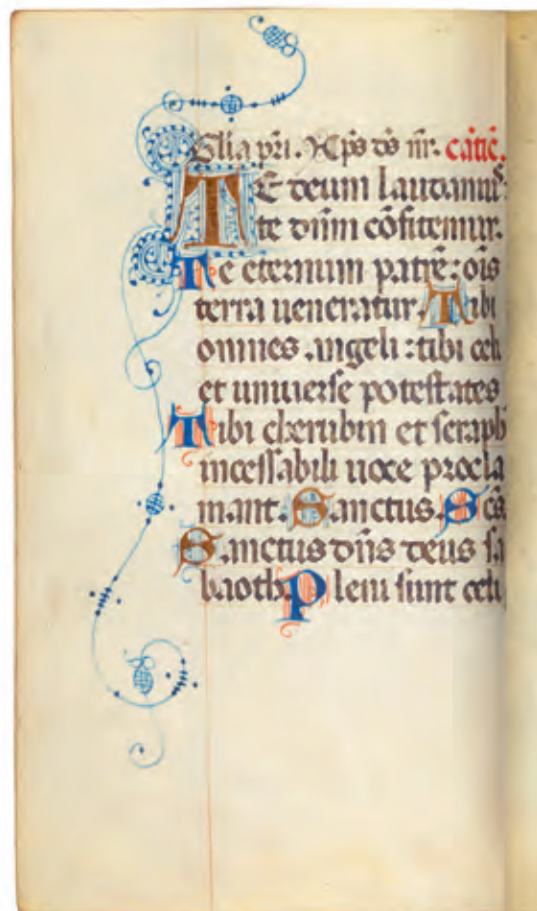 Glia pr̄i. Xp̄s d̄s nr̄. cātic̄.
TE deum laudamus:
te dn̄m cōfitemur.
Te eternum patrē: oīs
terra ueneratur. Tibi
omnes angeli: tibi celi
et uniuerse potestates
Tibi cherubin et seraph̄
incessabili uoce procla
mant. Sanctus. Sc̄s.
Sanctus dn̄s deus sa
baoth. Pleni sunt celi